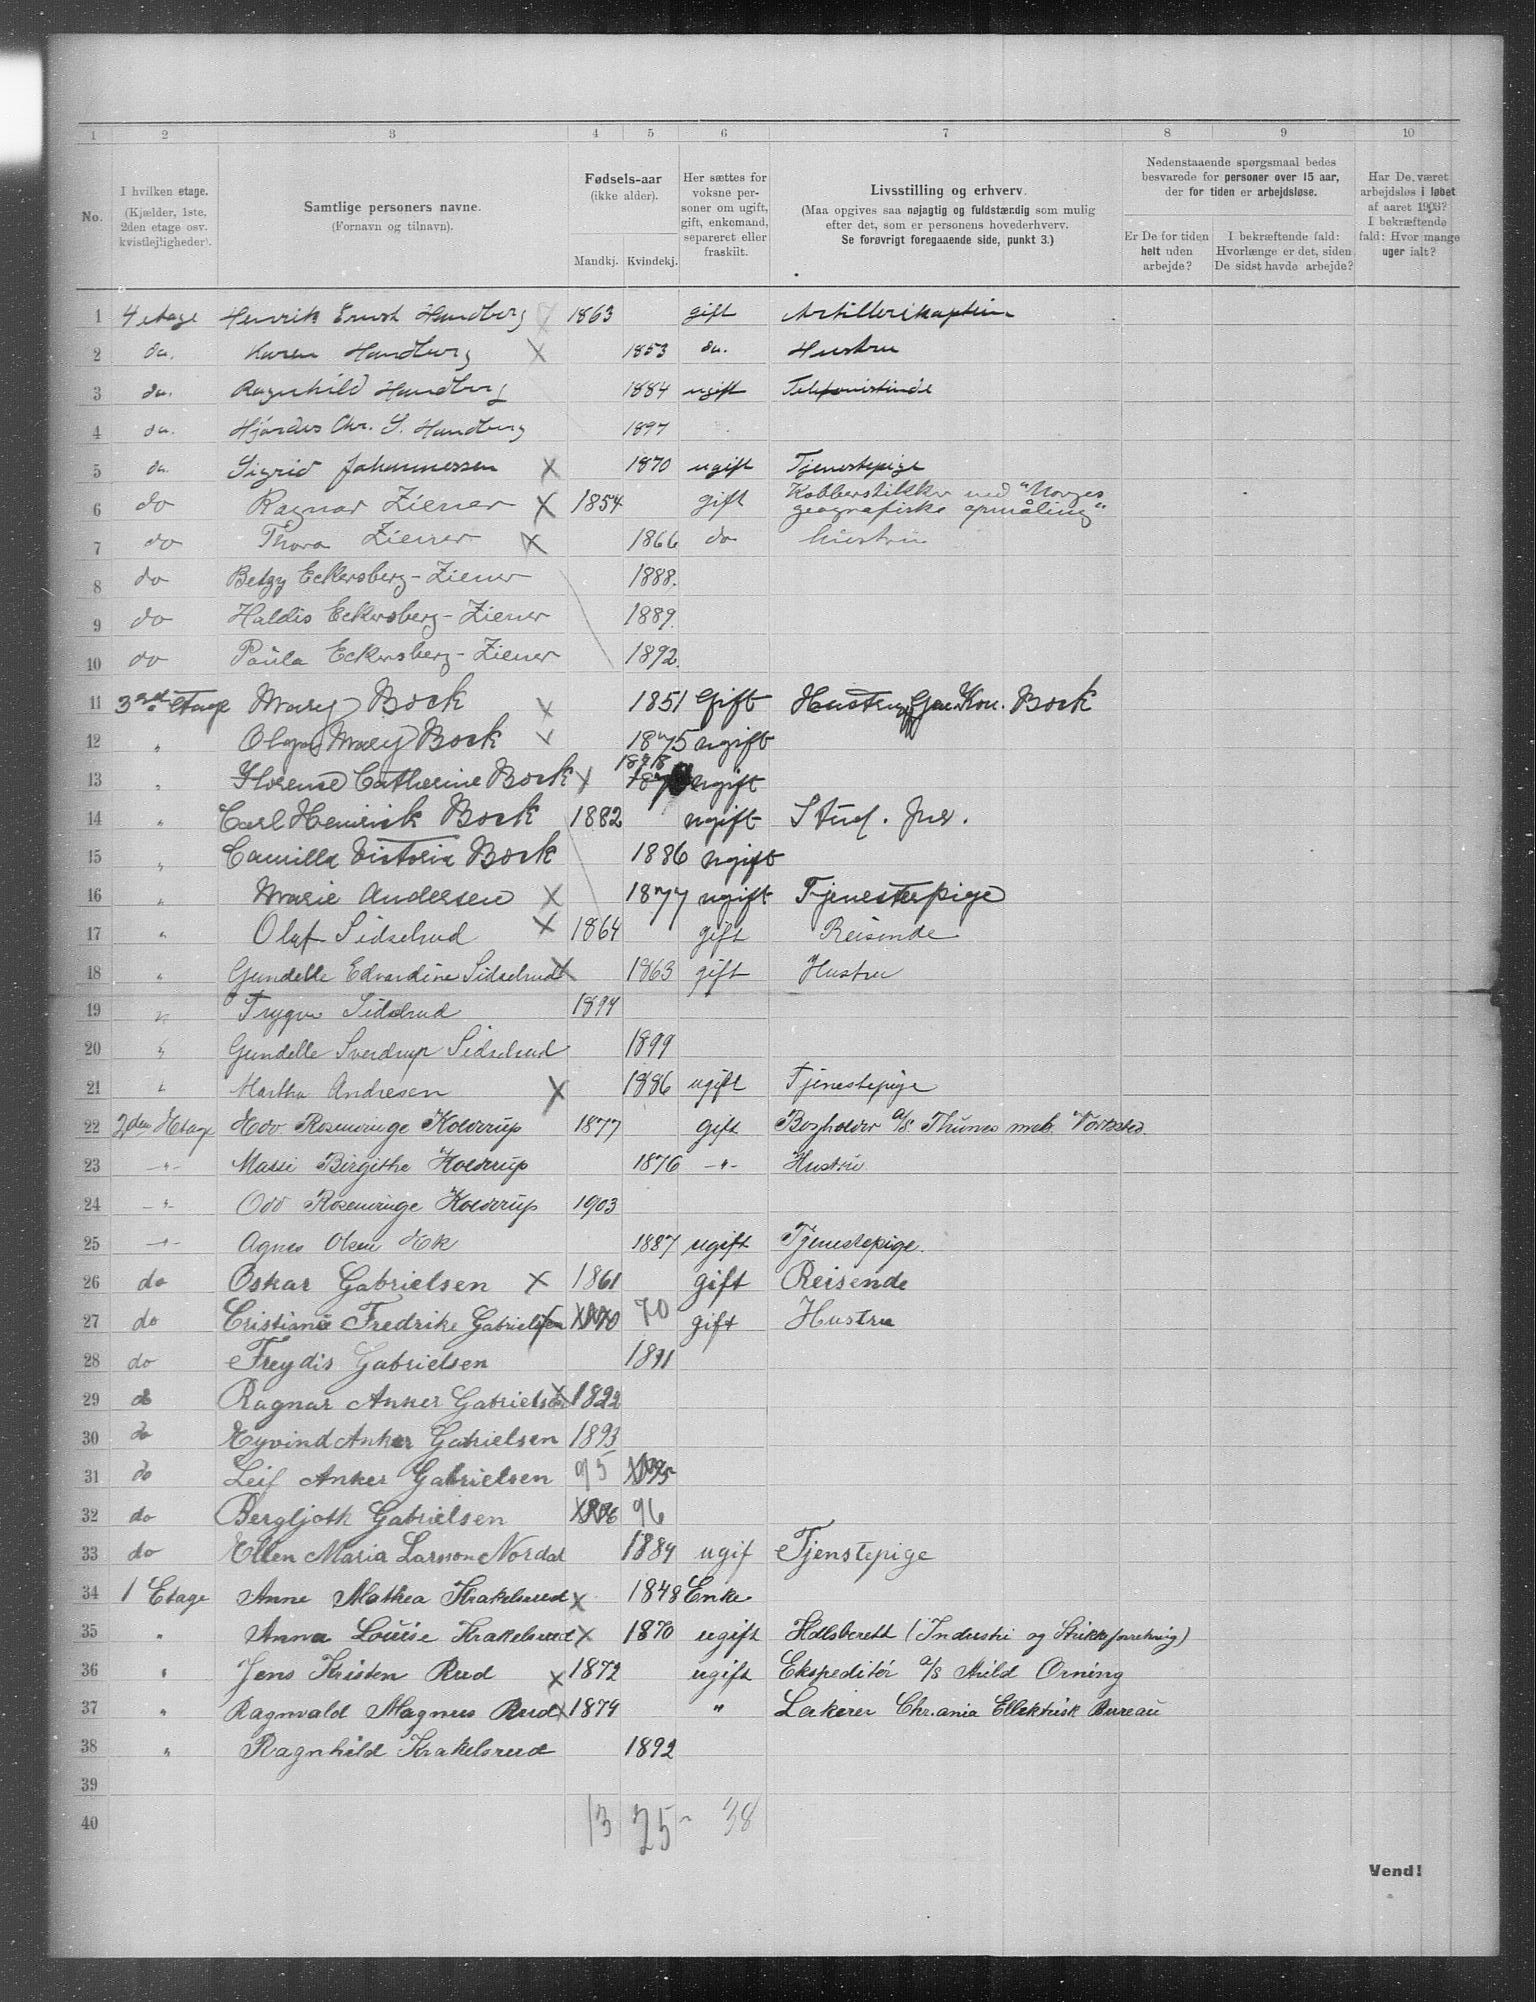 1 2 3 4 5 6 7 8 9 10
No.
I hvilken etage.
(Kjælder, 1ste,
2den etage osv.
kvistlejligheder).
Samtlige personers navne.
(Fornavn og tilnavn).
Fødsels-aar
(ikke alder).
Mandkj. Kvindekj.
Her sættes for
voksne per-
soner om ugift,
gift, enkemand,
separeret eller
fraskilt.
Livsstilling og erhverv.
(Maa opgives saa nøjagtig og fuldstændig som mulig
efter det, som er personens hovederhverv.
Se forøvrigt foregaaende side, punkt 3.)
Nedenstaaende spørgsmaal bedes
besvarede for personer over 15 aar,
der for tiden er arbejdsløse.
Er De for tiden
helt uden
arbejde?
I bekræftende fald:
Hvorlænge er det, siden
De sidst havde arbejde?
Har De været
arbejdsløs i løbet
af aaret 1903?
I bekræftende
fald: Hvor mange
uger ialt?
1 4 etage Henrik Ernst Handberg 1863 gift Artillerikaptein
2 do. Karen Handberg X 1853 do. Hustru
3 do. Ragnhild Handberg 1884 ugift Telefonistinde
4 do. Hjördis Chr. S. Handberg 1897
5 do. Sigrid Johannessen X 1870 ugift Tjenestepige
6 do Ragnar Ziener X 1854 gift Kobberstikker ved "Norges
geografiske opmåling"
7 do Thora Ziener X 1866 do hustru
8 do Betzy Eckersberg-Ziener 1888.
9 do Haldis Eckersberg-Ziener 1889.
10 do Paula Eckersberg-Ziener 1892.
11 3 Etage Mary Bock X 1851 Gift Hustru af Gen. Kon. Bock
12 " Olga Mary Bock 1875 ugift
13 " Florense Catherine Bock X 1878 ugift
14 " Carl Henrick Bock 1882 ugift Stud. Jur.
15 " Camilla Victoria Bock 1886 ugift
16 " Marie Andersen X 1877 ugift Tjenestepige
17 " Olaf Sidselrud X 1864 gift Reisende
18 " Gundelle Edvardine Sidselrud X 1863 gift Hustru
19 " Trygve Sidselrud 1894
20 " Gundelle Sverdrup Sidselrud 1899
21 " Martha Andresen X 1886 ugift Tjenestepige
22 2den Etage Edv Rosenvinge Kolderup 1877 gift Bogholder a/s. Thunes mek. Værksted.
23 -"- Massi Birgithe Kolderup 1876 -"- Hustru
24 -"- Odd Rosenvinge Kolderup 1903
25 -"- Agnes Olsen Ek 1887 ugift Tjenestepige.
26 do Oskar Gabrielsen X 1861 gift Reisende
27 do Cristiane Fredrike Gabrielsen 1870 70 gift Hustru
28 do Freydis Gabrielsen 1891
29 do Ragnar Anker Gabrielsen X 1892
30 do Eyvind Anker Gabrielsen 1893
31 do Leif Anker Gabrielsen 95 1895
32 do Bergljoth Gabrielsen 1896 96
33 do Ellen Maria Larsson Nordal 1884 ugif Tjenstepige
34 1 Etage Anne Mathea Krakelsrud X 1848 Enke
35 " Anna Louise Krakelsrud X 1870 ugift Hdlsberett (Industri og Strikkeforretning)
36 " Jens Kristen Rud X 1872 ugift Ekspeditör a/s Arild Orning
37 " Ragnvald Magnus Rud X 1874 " Lakerer Chr.ania Ellektrisk Bureau
38 " Ragnhild Krakelsrud 1892
39
40 13 25 - 38
Vend!